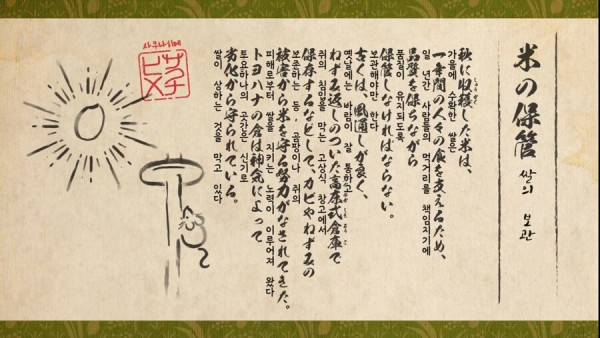 米の保管
쌀의 보관
秋に収穫した米は、
가을에 수확한 쌀은
一年間の人々の食を支えるため、
일 년간 사람들의 먹거리를 책임지기에
品質を保ちながら
품질이 유지되도록
保管しなければならない。
보관해야만 한다
古くは、風通しが良く、
옛날에는 바람이 잘 통하고
ねずみ返しのついた高床式倉庫で
쥐의 침입을 막는 고상식 창고에서
保存するなどして、カビやねずみの
보존하는 등, 곰팡이나 쥐의
被害から米を守る努力がなされてきた。
피해로부터 쌀을 지키는 노력이 이루어져 왔다
トヨハナの倉は神気によって
토요하나의 곳간은 신기로
劣化から守られている。
쌀이 상하는 것을 막고 있다
사쿠나히메
サクナヒメ